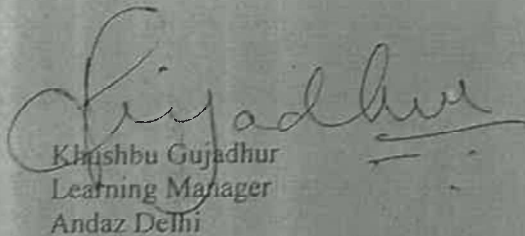 Khushbu Gujadhur
Learning Manager
Andaz Delhi